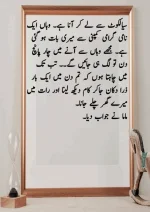 سیالکوٹ سے لے کر آنا ہے۔ وہاں ایک
نامی گرامی کمپنی سے میری بات ہو گئی
ہے۔ مجھے وہاں سے آنے میں چار پانچ
دن تو لگ ہی جائیں گے۔۔ تب تک
میں چاہتا ہوں کہ تم دن میں ایک بار
ذرا دکان جا کر کام دیکھ لینا اور رات میں
میرے گھر چلے جانا۔
ماما نے جواب دیا۔